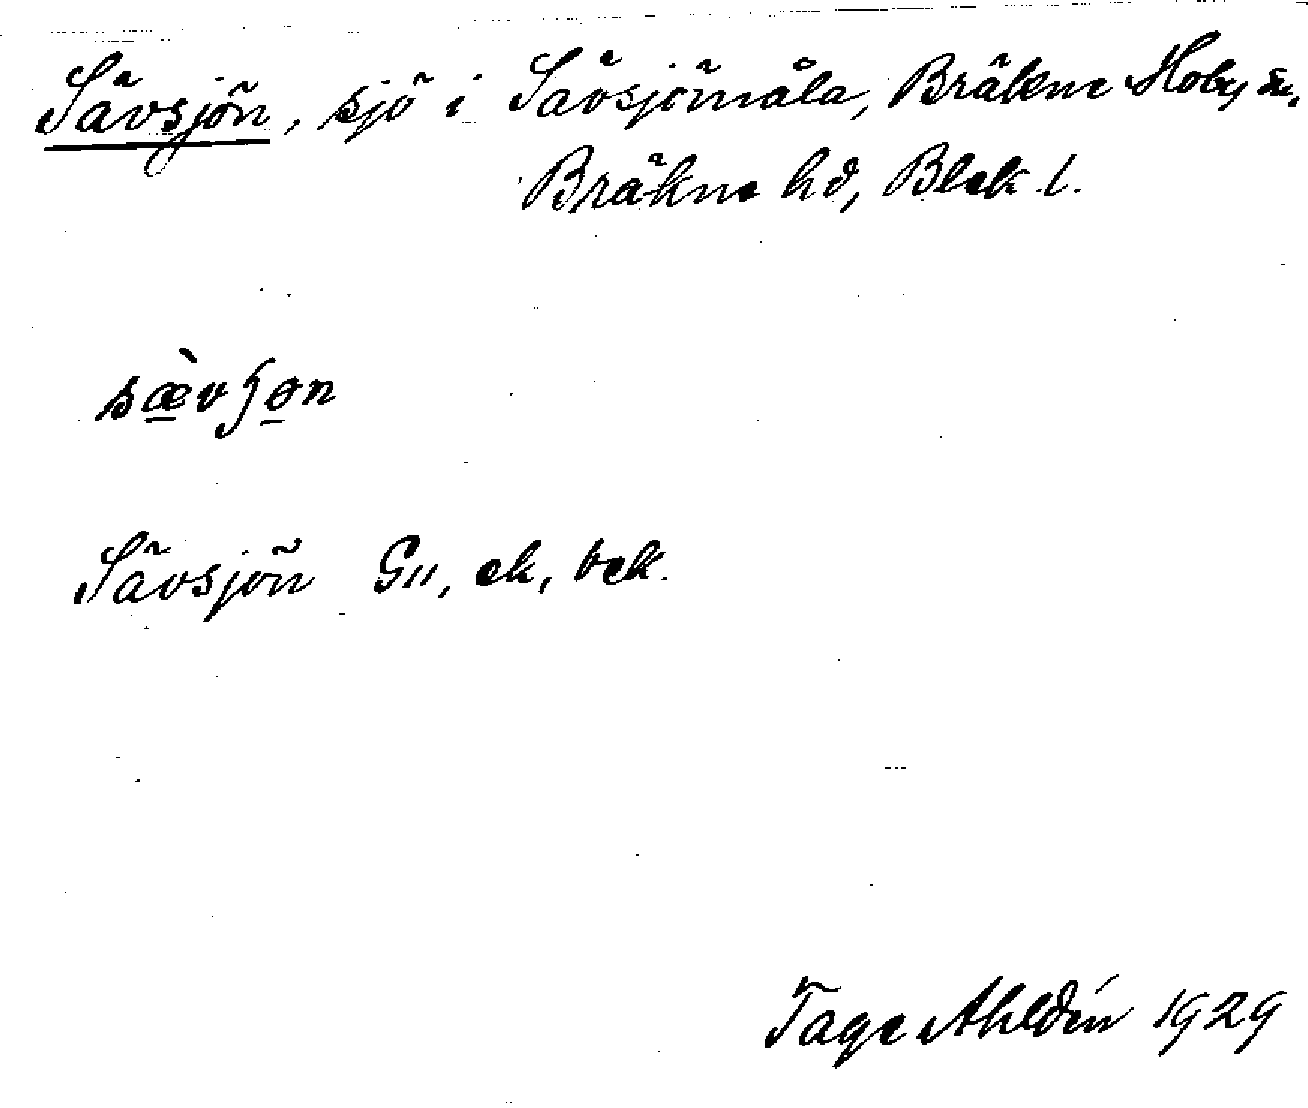 Sävsjön, sjö i Sävsjömåla, Bräkne Hoby sn,
Bräkne hd, Blek. l.
sæ̀vʃøn
Sävsjön G11, ek, bek.
Tage Ahldén 1929